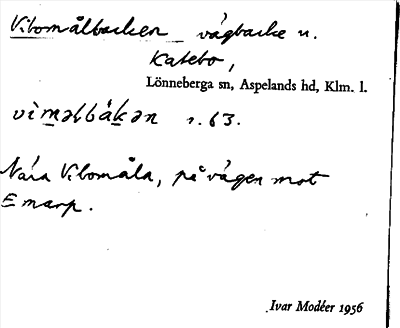 Vibomålbacken vägbacke n.
Katebo,
Lönneberga sn, Aspelands hd, Klm. l.
s. 63.
Nära Vibomåla, på vägen mot
Emarp.
Ivar Modéer 1956